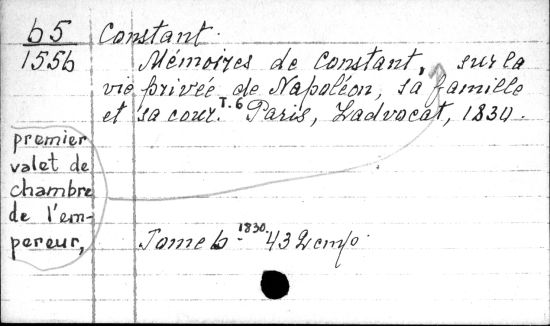 b5
1556
Constant.
Mémoires de Constant, sur la
vie privée de Napoléon, sa famille
et sa cour. T. 6 Paris, Ladvocat, 1830.
premier
valet de
chambre
de l'em-
pereur,
Tome 6 - 1830 432 стр.